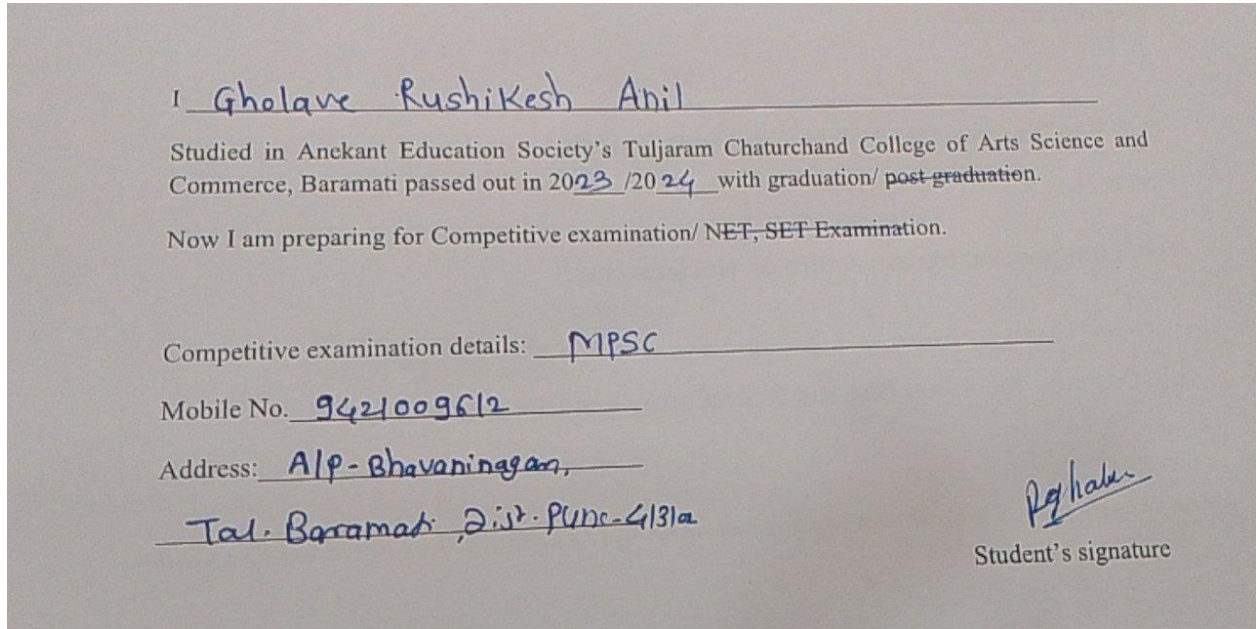 I Gholave Rushikesh Anil
Studied in Anekant Education Society's Tuljaram Chaturchand College of Arts Science and
Commerce, Baramati passed out in 2023 /2024 with graduation/ post graduation.
Now I am preparing for Competitive examination/ NET, SET Examination.
Competitive examination details: MPSC
Mobile No. 9421009612
Address: A/P - Bhavaninagar,
Tal. Baramati, Dist. Pune-
Student's signature